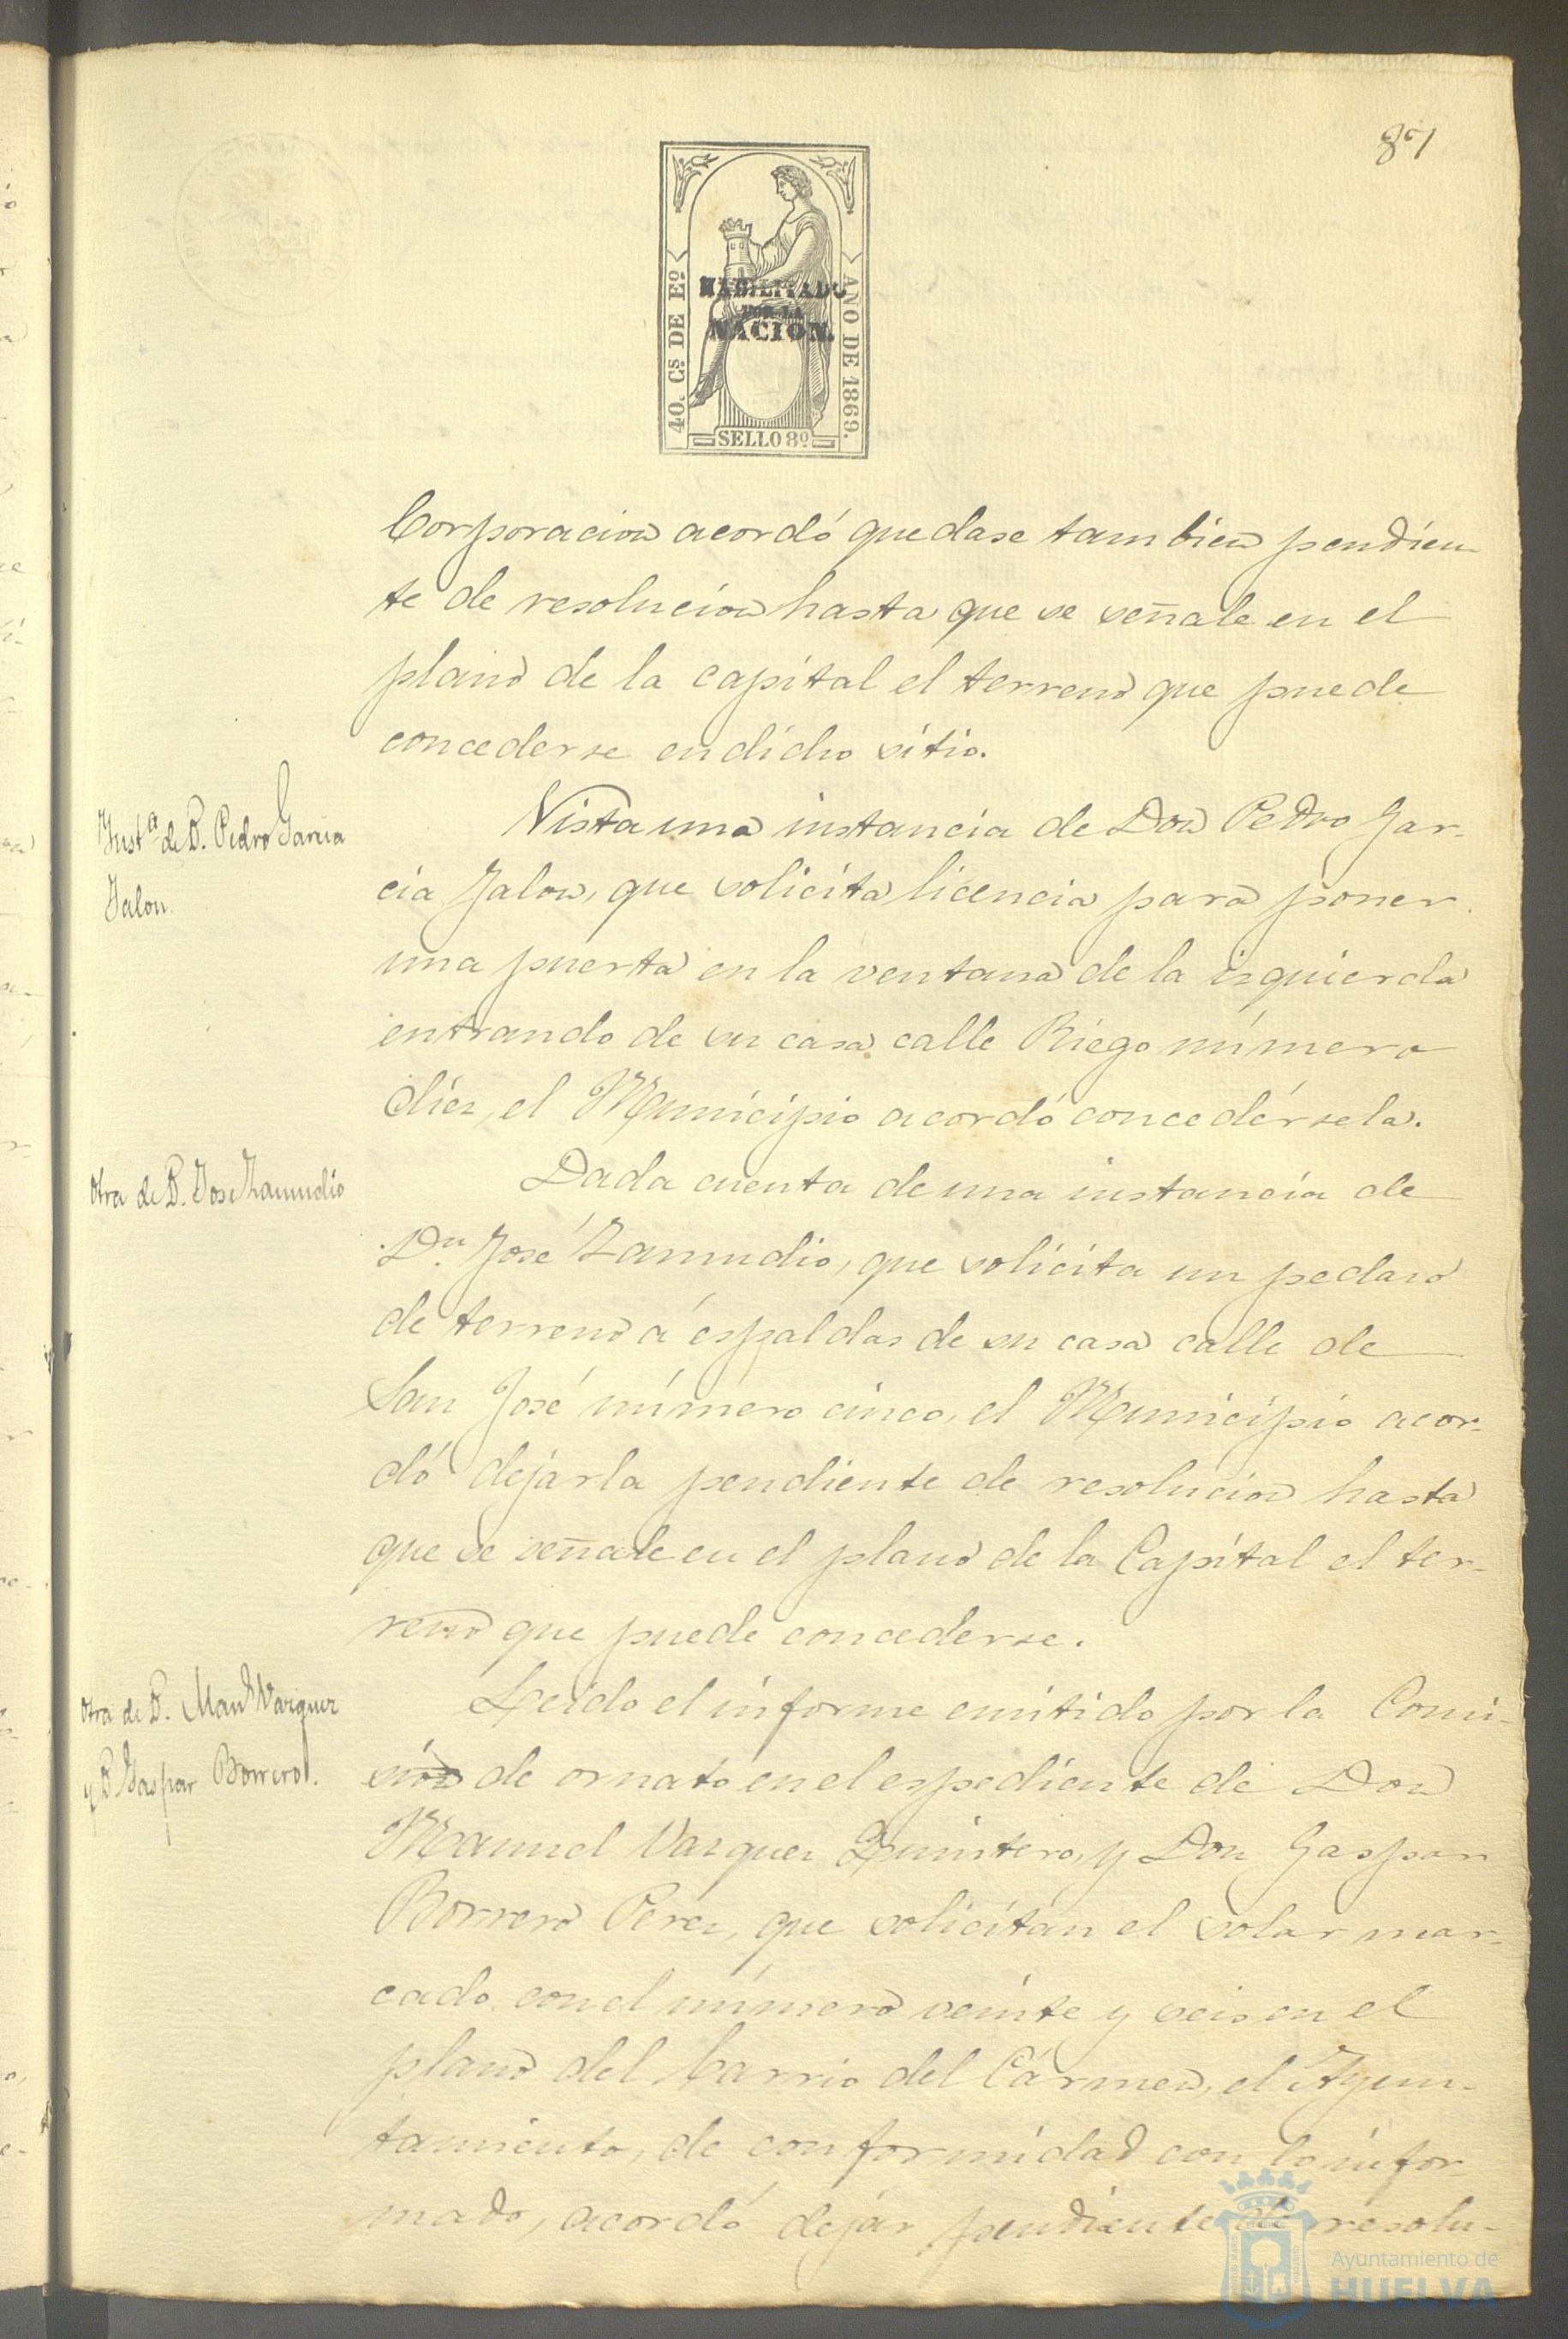 87
40. Cs DE Eº
AÑO DE 1869.
HABILITADO
POR LA
NACION.
SELLO 8º
Corporacion acordó quedase tambien pendien-
te de resolucion hasta que se señale en el
plano de la capital el terreno que puede
concederse en dicho sitio.
Instª de D. Pedro Garcia
Jalon
Vista una instancia de Don Pedro Gar-
cia Jalon, que solicita licencia para poner
una puerta en la ventana de la izquierda
entrando de su casa calle Riego número
diez, el Municipio acordó concedérsela.
Otra de D. Jose Zamudio
Dada cuenta de una instancia de
Dn. José Zamudio, que solicita un pedazo
de terreno á espaldas de su casa calle de
San José número cinco, el Municipio acor-
dó dejarla pendiente de resolucion hasta
que se señale en el plano de la Capital el ter-
reno que puede concederse.
Otra de D. Manl Vazquez
y D. Gaspar Borrero.
Leido el informe emitido por la Comi-
sion de ornato en el espediente de Don
Manuel Vazquez Quintero, y Don Gaspar
Borrero Perez, que solicitan el solar mar-
cado con el número veinte y seis en el
plano del barrio del Cármen, el Ayun-
tamiento, de conformidad con lo infor-
mado, acordó dejar pendiente de resolu-
Ayuntamiento de
HUELVA